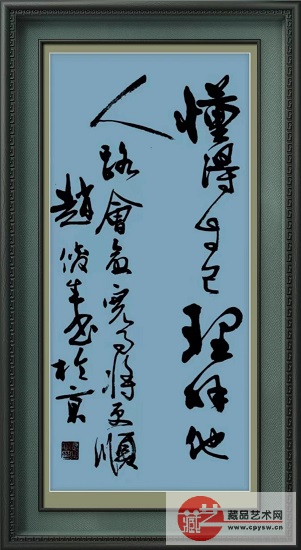 懂得自己理解他
人路會愈寬事將更順
趙俊生书於京
藏品艺术网
www.cpysw.cn